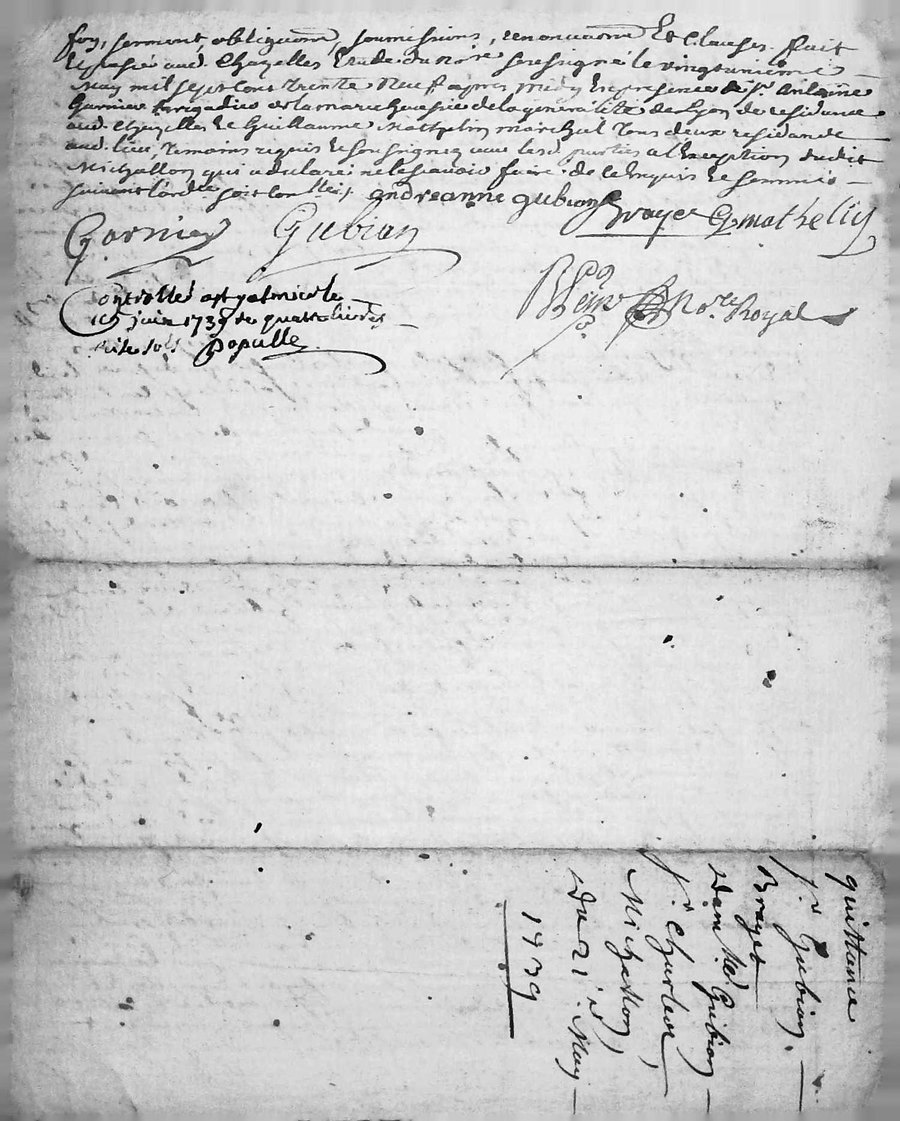 foy, serment, obligãons, soumissions, renonciaõns Et Clauses. ffait
Et passé aud. Chazelles Etude du no.re sousigné le vingtunieme
May mil sept Cent trente Neuf apres midy En presence de S.r Antoine
Garnier brigadier de la marechaussée de la generalité de Lyon de residance
aud. Chazelles Et Guillaume Mathelin marchal tous deux residants
aud. lieu, temoins requis Et sousignez avec lesd. parties a l'Exception dudit
Michallon qui a declaré ne le scavoir faire de ce Enquis Et sommé
suivant l'ord.ce soit Controllé andreanne gubian
Brayet G mathelin
Garnier Gubian
Controllé a st galmier le
juin 1739 Re quatre livres
sols Populle
No.re Royal
quittance
S.r Gubian
Brayet
Dam.lle Gubian
S.r Charles
Michallon,
Du 21.e May
1739